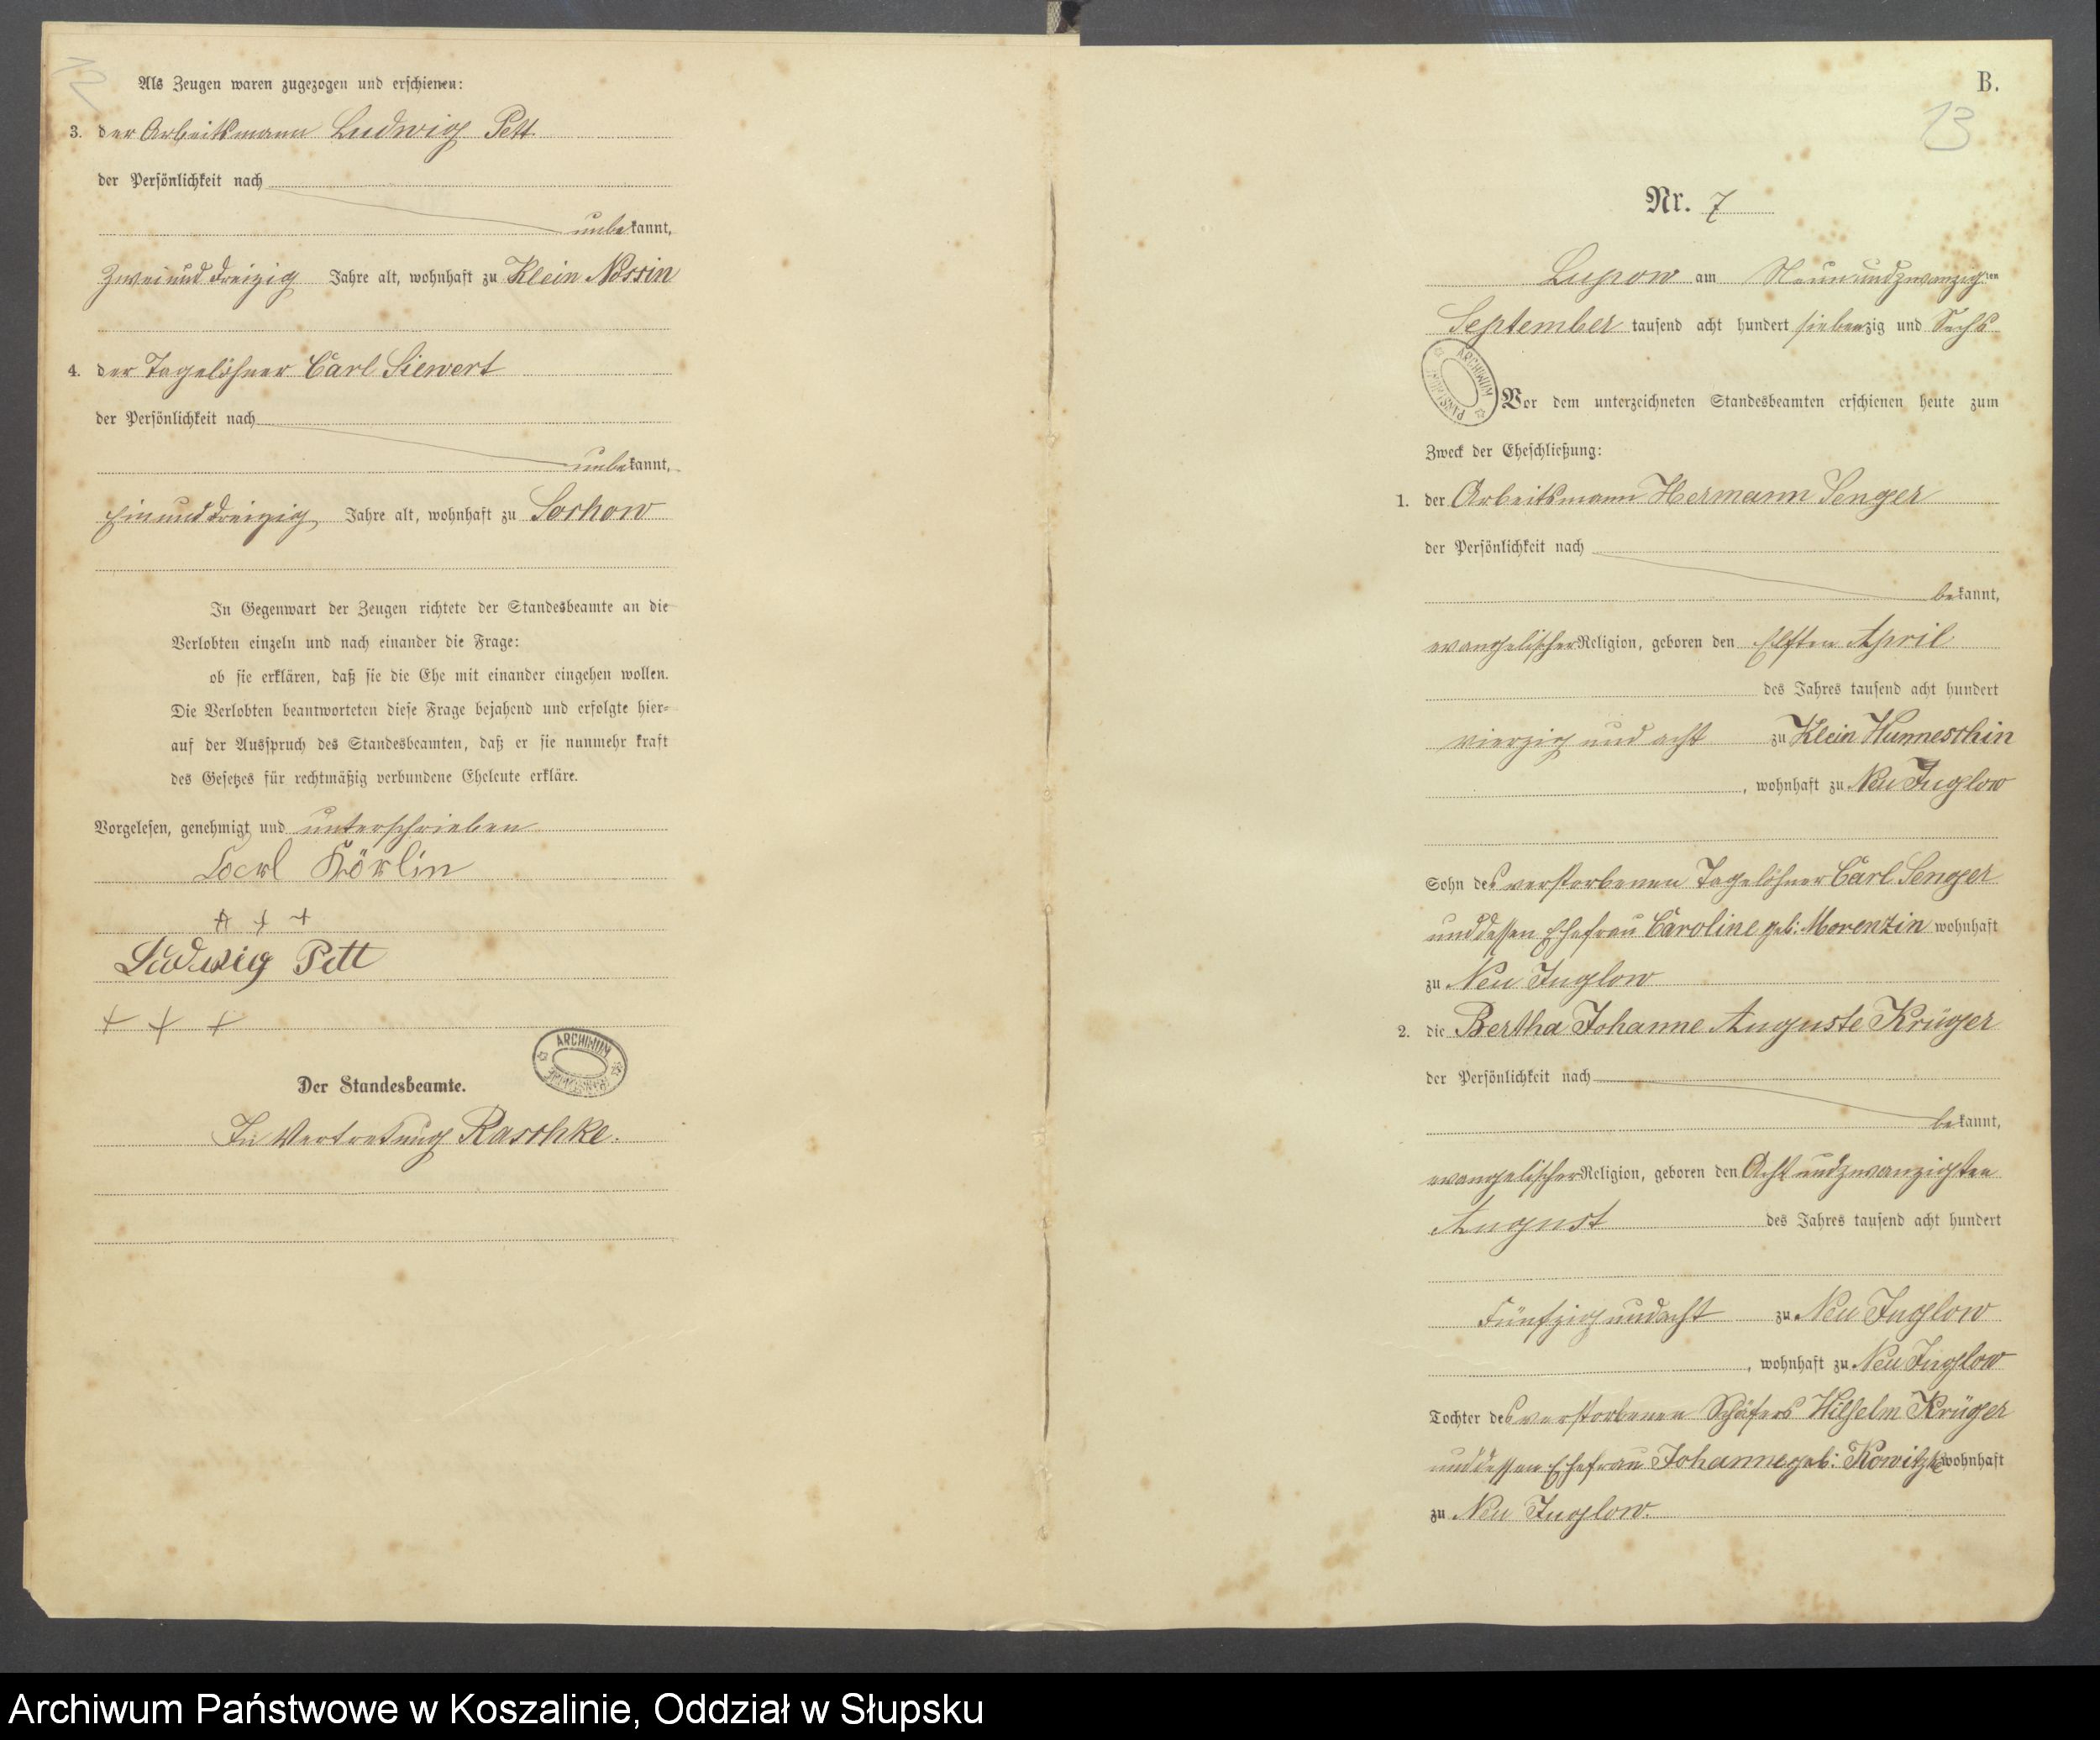 12
Als Zeugen waren zugezogen und erschienen:
3. der Arbeitsmann Ludwig Pett
der Persönlichkeit nach
unbekannt,
Zweiunddreizig Jahre alt, wohnhaft zu Klein Nossin
4. der Tagelöhner Carl Siewert
der Persönlichkeit nach
unbekannt,
Einunddreizig Jahre alt, wohnhaft zu Sochow
In Gegenwart der Zeugen richtete der Standesbeamte an die
Verlobten einzeln und nach einander die Frage:
ob sie erklären, daß sie die Ehe mit einander eingehen wollen.
Die Verlobten beantworteten diese Frage bejahend und erfolgte hier-
auf der Ausspruch des Standesbeamten, daß er sie nunmehr kraft
des Gesetzes für rechtmäßig verbundene Eheleute erkläre.
Vorgelesen, genehmigt und unterschrieben
Carl Körlin
+ + +
Ludwig Pett
+ + +
ARCHIWUM
Der Standesbeamte.
In Vertretung Raschke.
B.
13
Nr. 7
Lupow am Neunundzwanzigten
September tausend acht hundert siebenzig und Sechs
ARCHIWUM PAŃSTWOWE
Vor dem unterzeichneten Standesbeamten erschienen heute zum
Zweck der Eheschließung:
1. der Arbeitsmann Hermann Senger
der Persönlichkeit nach
bekannt,
evangelischer Religion, geboren den Elften April
des Jahres tausend acht hundert
vierzig und acht zu Klein Hunneschin
, wohnhaft zu Neu Juglow
Sohn des verstorbenen Tagelöhner Carl Senger
und dessen Ehefrau Caroline geb: Morenzin wohnhaft
zu Neu Juglow
2. die Bertha Johanne Auguste Krüger
der Persönlichkeit nach
bekannt,
evangelischer Religion, geboren den Acht und zwanzigsten
August des Jahres tausend acht hundert
Fünfzig und acht zu Neu Juglow
, wohnhaft zu Neu Juglow
Tochter des verstorbenen Schäfers Wilhelm Krüger
und dessen Ehefrau Johanne geb: Kowitzke wohnhaft
zu Neu Juglow.
Archiwum Państwowe w Koszalinie, Oddział w Słupsku